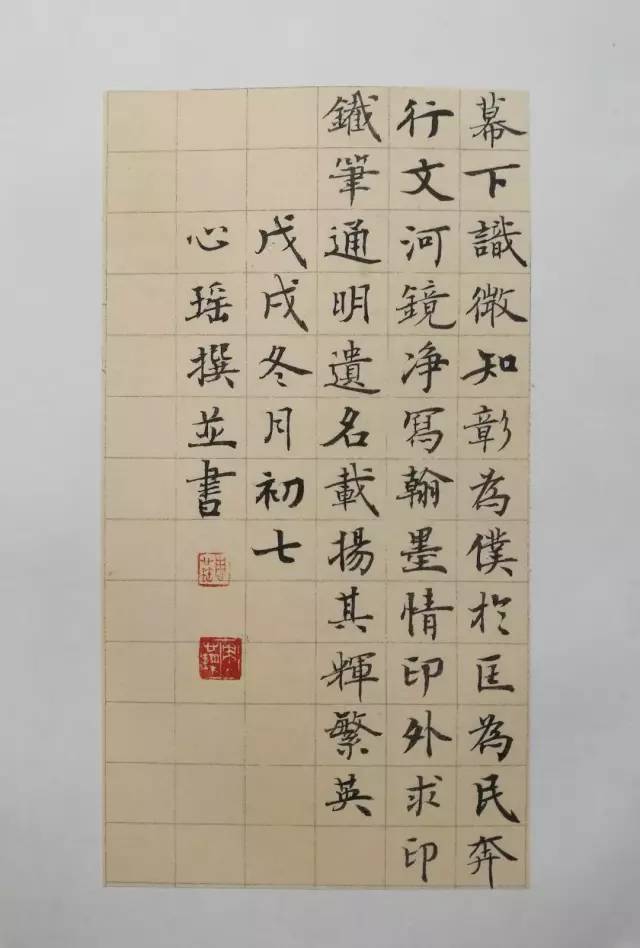 幕下識微知彰為僕於匡為民奔
行文河鏡净寫翰墨情印外求印
鐵筆通明遺名載揚其輝繁英
戊戌冬月初七
心瑶撰並書